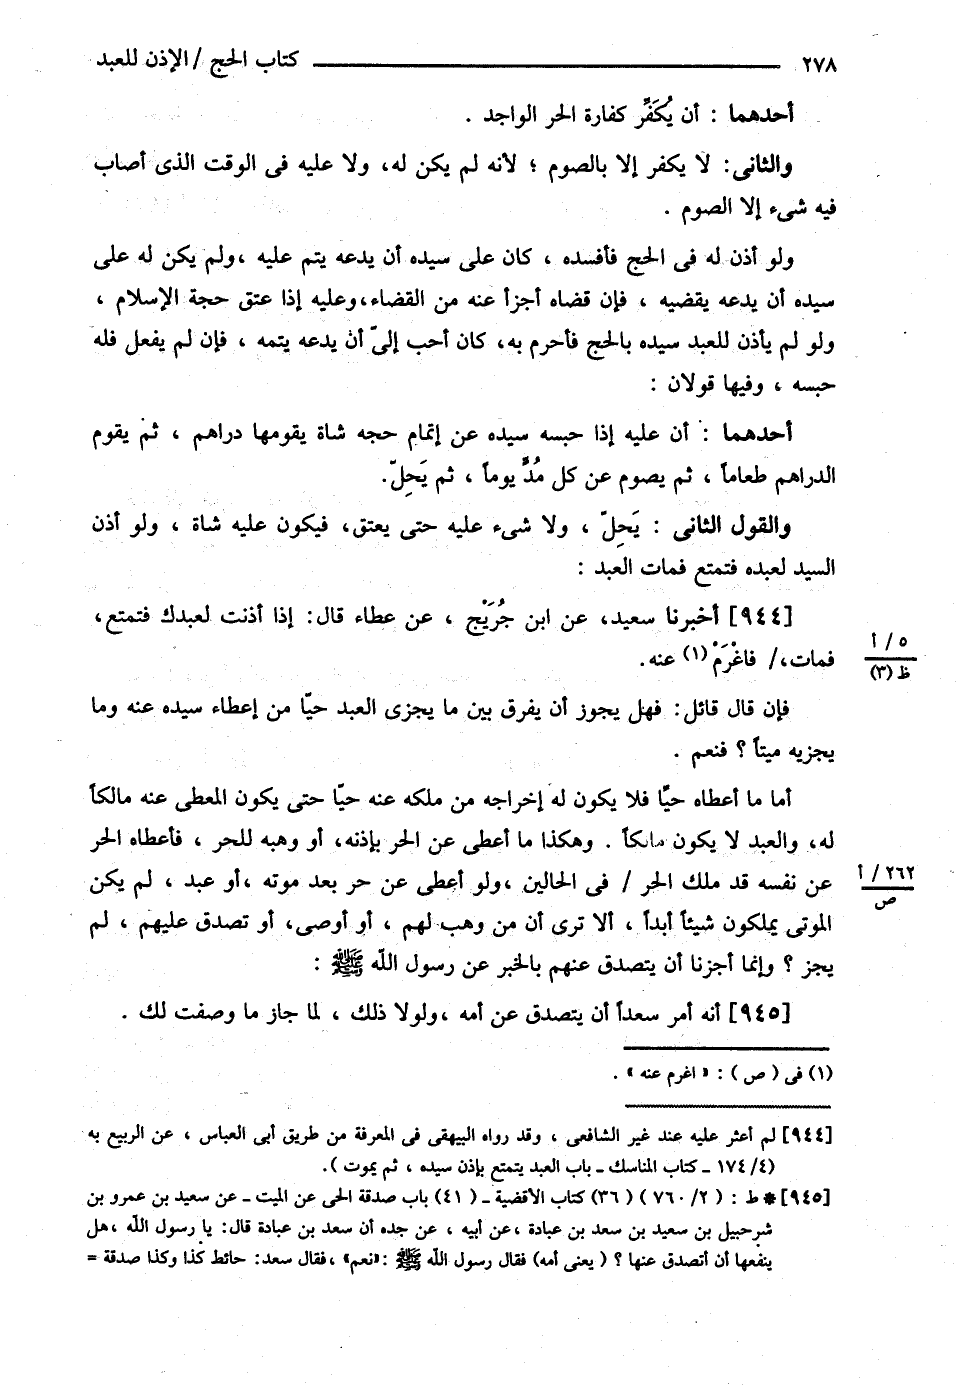 ٢٧٨ كتاب الحج / الإذن للعبد
أحدهما : أن يُكَفِّر كفارة الحر الواجد .
والثانى: لا يكفر إلا بالصوم ؛ لأنه لم يكن له، ولا عليه فى الوقت الذى أصاب
فيه شىء إلا الصوم .
ولو أذن له فى الحج فأفسده ، كان على سيده أن يدعه يتم عليه ،ولم يكن له على
سيده أن يدعه يقضيه ، فإن قضاه أجزأ عنه من القضاء،وعليه إذا عتق حجة الإسلام ،
ولو لم يأذن للعبد سيده بالحج فأحرم به، كان أحب إلىّ أن يدعه يتمه ، فإن لم يفعل فله
حبسه ، وفيها قولان :
أحدهما : أن عليه إذا حبسه سيده عن إتمام حجه شاة يقومها دراهم ، ثم يقوم
الدراهم طعاماً ، ثم يصوم عن كل مُدٍّ يوماً ، ثم يَحِلّ.
والقول الثانى : يَحِلّ ، ولا شىء عليه حتى يعتق، فيكون عليه شاة ، ولو أذن
السيد لعبده فتمتع فمات العبد :
[٩٤٤] أخبرنا سعيد، عن ابن جُرَيْج ، عن عطاء قال: إذا أذنت لعبدك فتمتع،
فمات،/ فاغْرَمْ (١) عنه.
٥ / أ
ظ (٣)
فإن قال قائل: فهل يجوز أن يفرق بين ما يجزى العبد حيّا من إعطاء سيده عنه وما
يجزيه ميتاً ؟ فنعم .
أما ما أعطاه حيًّا فلا يكون له إخراجه من ملكه عنه حيّا حتى يكون المعطى عنه مالكاً
له، والعبد لا يكون مالكاً . وهكذا ما أعطى عن الحر بإذنه، أو وهبه للحر ، فأعطاه الحر
عن نفسه قد ملك الحر / فى الحالين ،ولو أعطى عن حر بعد موته ،أو عبد ، لم يكن
٢٦٢ / أ
ص
الموتى يملكون شيئاً أبداً ، ألا ترى أن من وهب لهم ، أو أوصى، أو تصدق عليهم ، لم
يجز ؟ وإنما أجزنا أن يتصدق عنهم بالخبر عن رسول الله ﷺ :
[٩٤٥] أنه أمر سعداً أن يتصدق عن أمه ،ولولا ذلك ، لما جاز ما وصفت لك .
(١) فى ( ص ) : « اغرم عنه » .
[٩٤٤] لم أعثر عليه عند غير الشافعى ، وقد رواه البيهقى فى المعرفة من طريق أبى العباس ، عن الربيع به
(٤/ ١٧٤ ـ كتاب المناسك ـ باب العبد يتمتع بإذن سيده ، ثم يموت ).
[٩٤٥] * ط : ( ٢/ ٧٦٠ ) (٣٦) كتاب الأقضية ـ (٤١) باب صدقة الحى عن الميت ـ عن سعيد بن عمرو بن
شرحبيل بن سعيد بن سعد بن عبادة ،عن أبيه ، عن جده أن سعد بن عبادة قال: يا رسول الله ،هل
ينفعها أن أتصدق عنها ؟ ( يعنى أمه) فقال رسول الله ﷺ :«نعم» ،فقال سعد: حائط كذا وكذا صدقة =